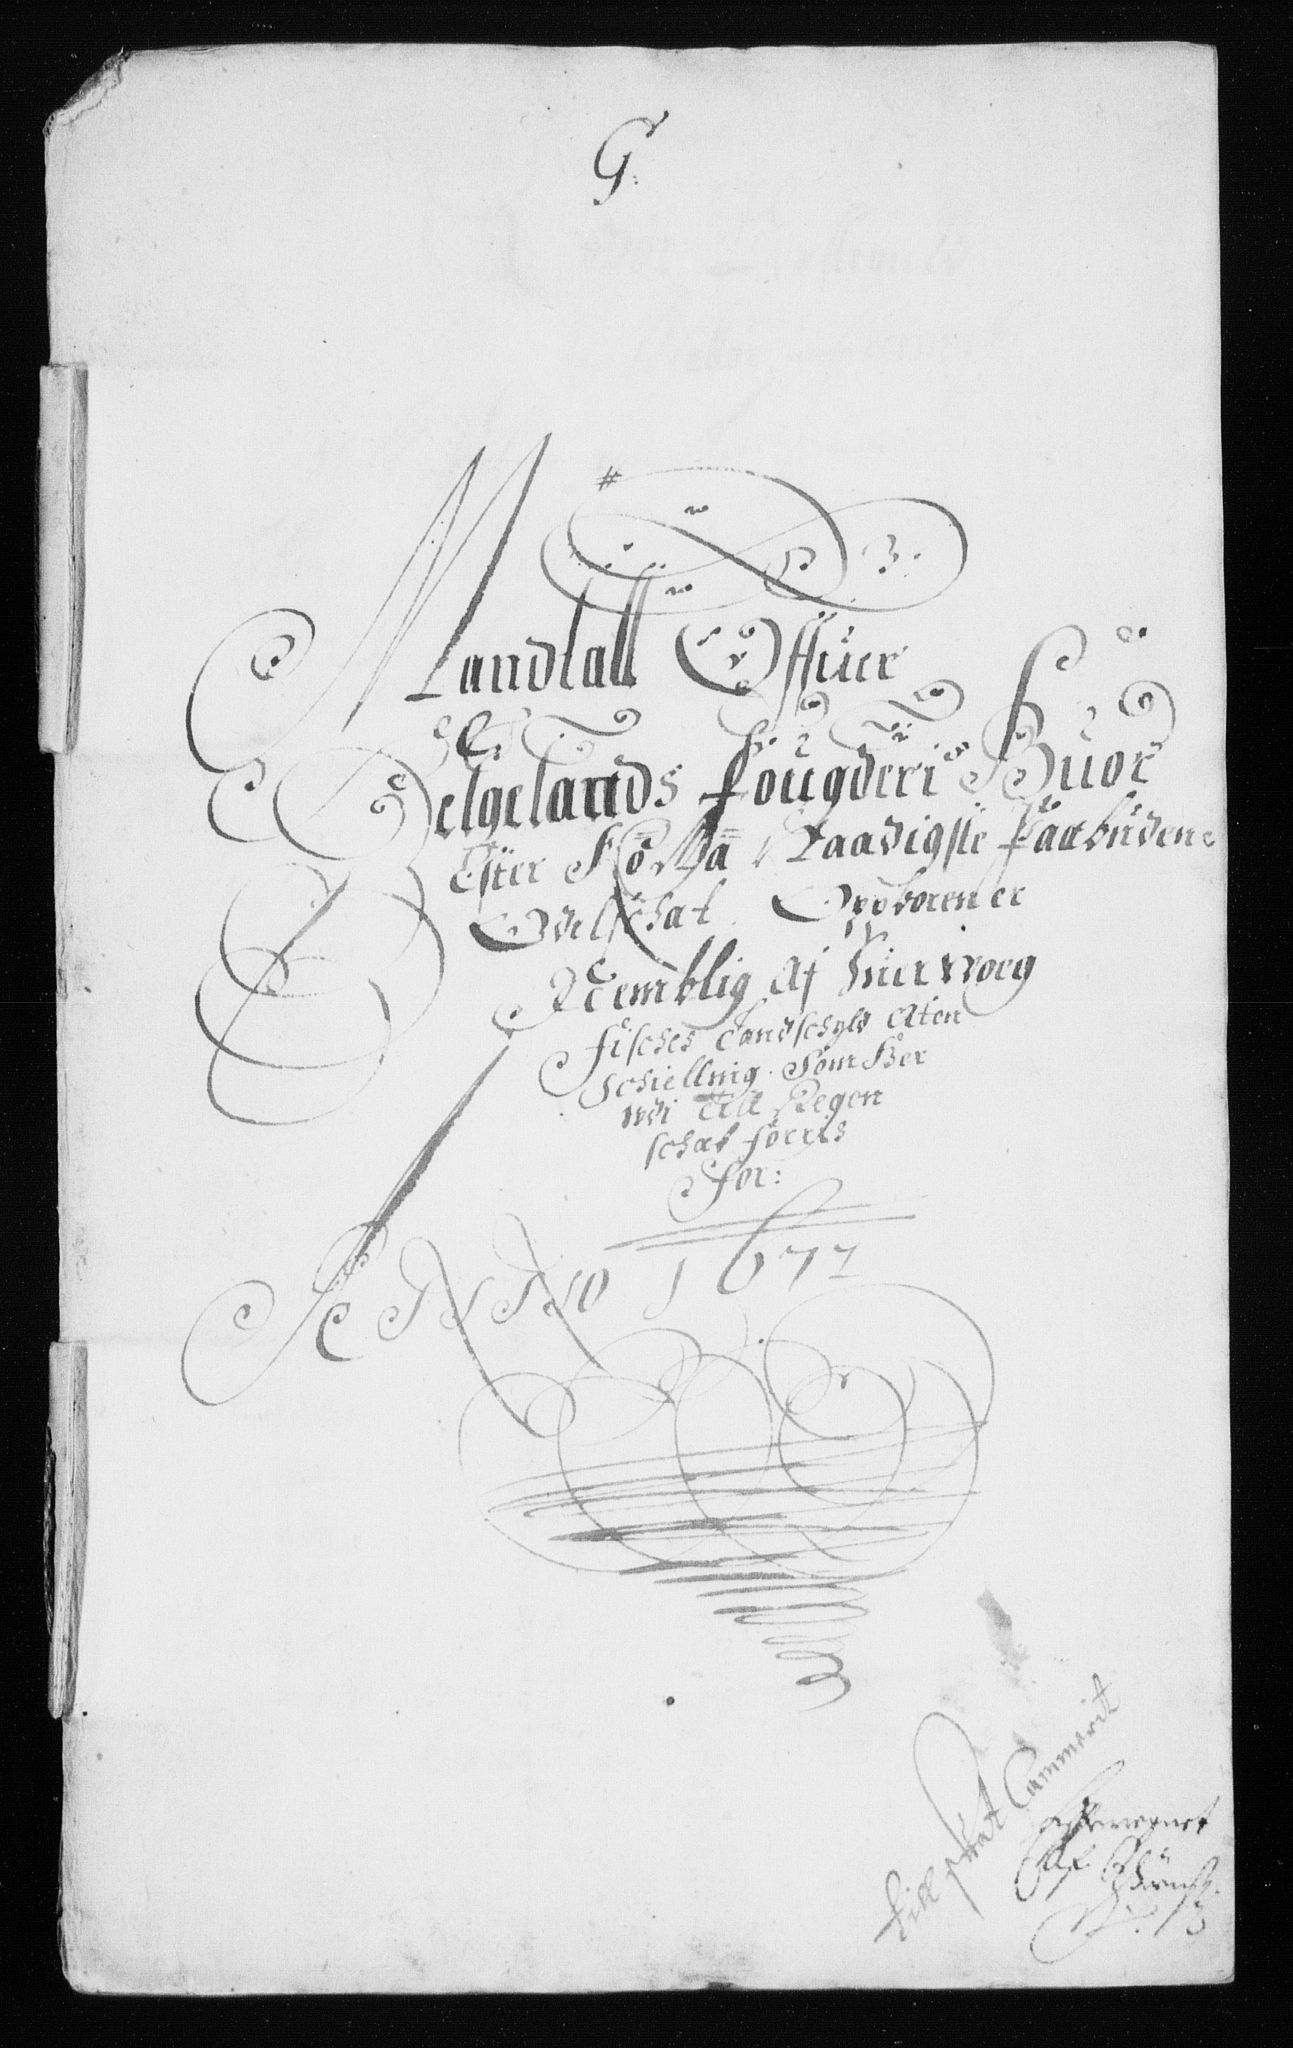 G:
Mandtall Offuer
Helgelands fougderi Huor
Effter Kö: Ma: Naadigste Paabuden
Odelschat Oppboren er
Nemblig Af Huer woeg
fisches Landschyld Aten
Schielling. Som Her
wdi till Regen
schab föeris
for:
ANNO 1677
till skat Cammerit
Af